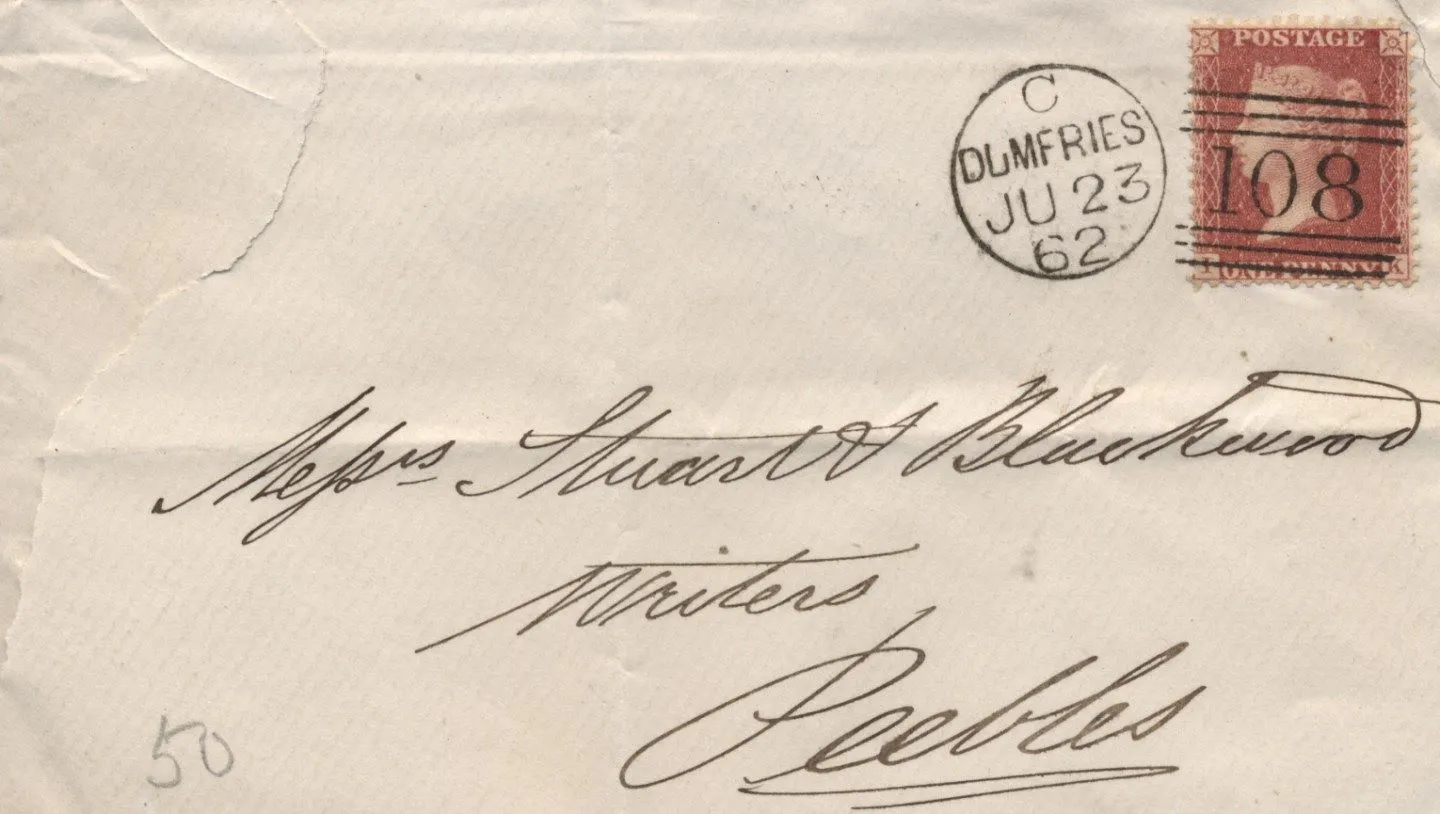 POSTAGE
C
DUMFRIES
JU 23
62
108
ONE PENNY K
Messrs Stuart & Blackwood
Writers
Peebles
50